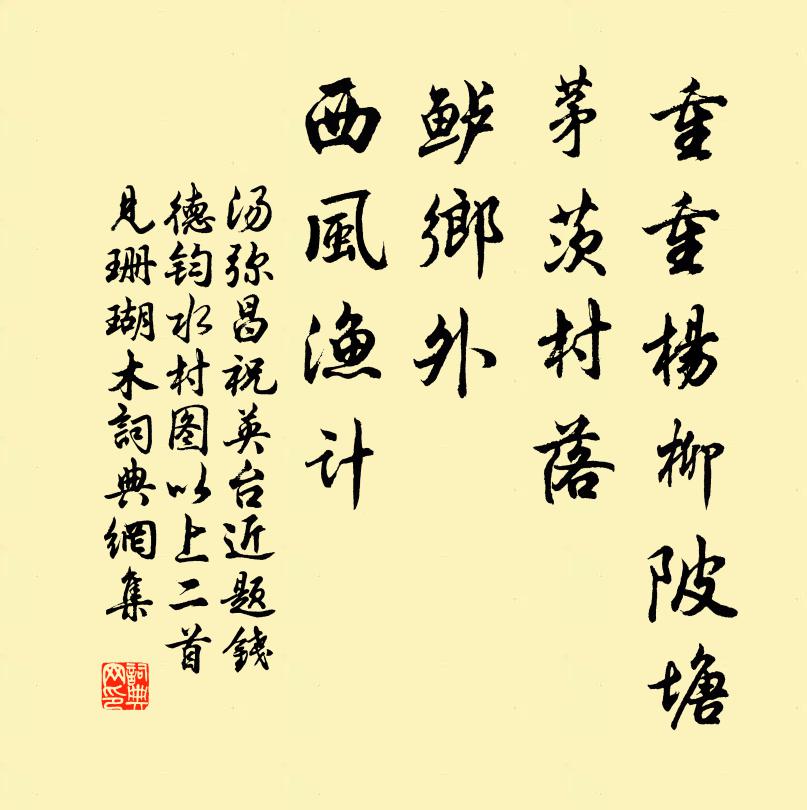 重重楊柳陂塘
茅茨村落
鲈鄉外
西風漁計
汤弥昌祝英台近题錢
德钧水村图以上二首
见珊瑚木詞典網集
詞典
网印